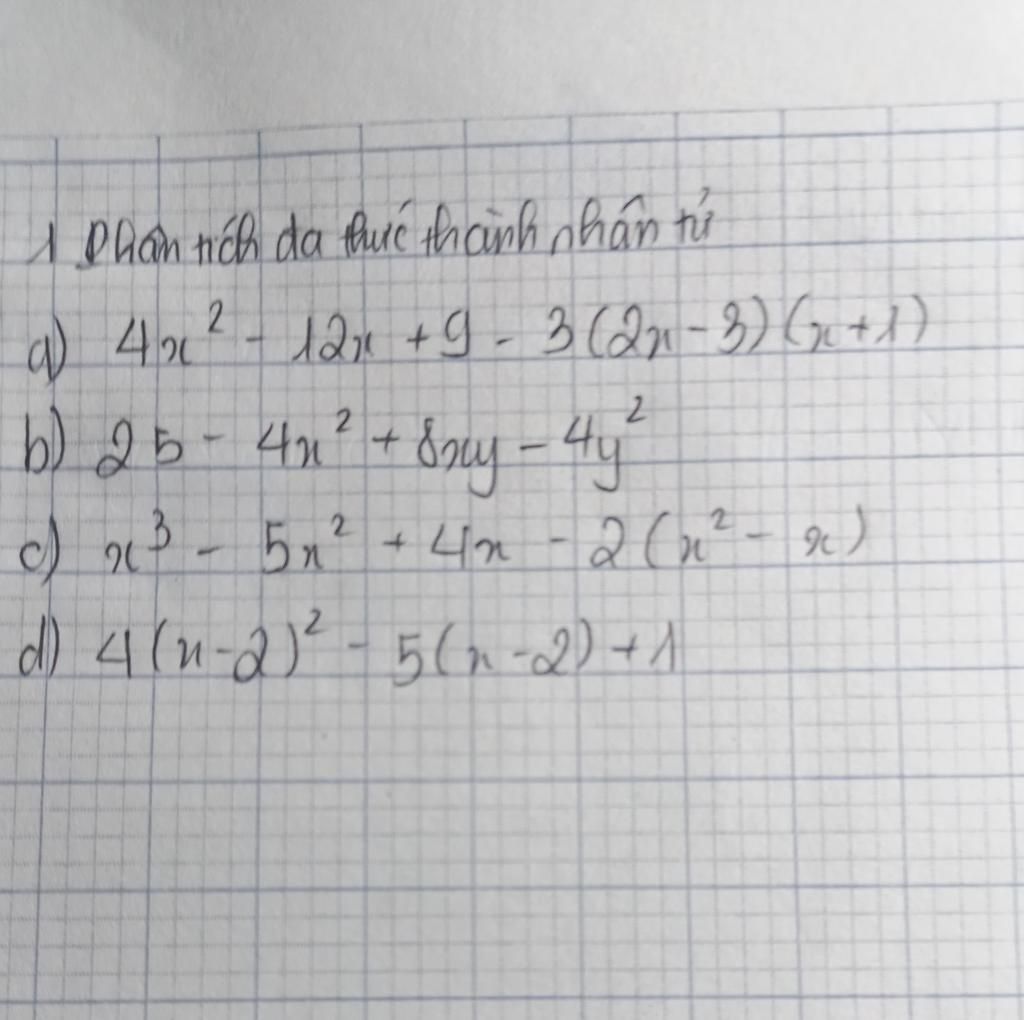 1 Phân tích đa thức thành nhân tử
a) 4x² - 12x + 9 - 3(2x - 3)(x + 1)
b) 25 - 4x² + 8xy - 4y²
c) x³ - 5x² + 4x - 2(x² - x)
d) 4(x - 2)² - 5(x - 2) + 1